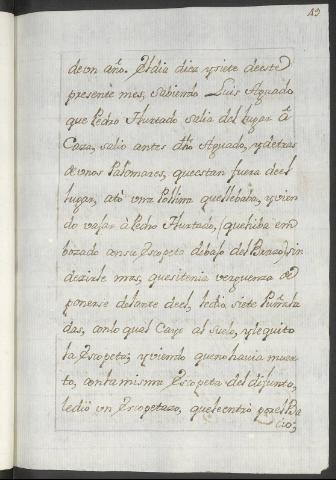 49
de vn año. El dia diez y siete de este
presente mes, sabiendo Luis Aguado
que Pedro Hurtado salia del lugar â
Caza, salio antes dho Aguado, y detras
de vnos Palomares, que estan fuera de el
lugar, atò vna Pollina que llebaba, y vien
do vajar à Pedro Hurtado, (que hiba em
bozado con su Escopeta debajo del Brazo) sin
decirle mas, que si tenia verguenza de
ponerse delante de el, le dio siete Puñala
das, con lo qual Caye al suelo, y le quito
la Escopeta; y viendo que no havia muer
to, con la misma Escopeta del difunto,
le diò vn Escopetazo, que le entrò por el Ba
cio;